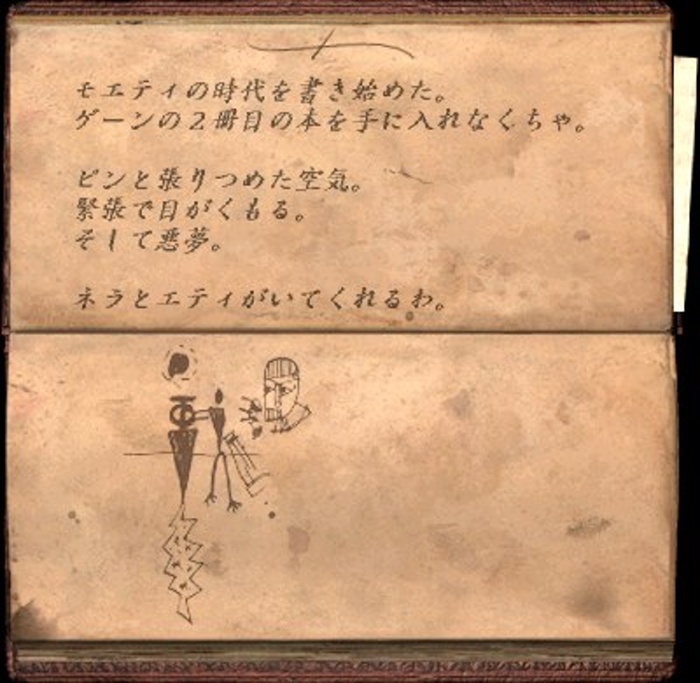 モエティの時代を書き始めた。
ゲーンの２冊目の本を手に入れなくちゃ。
ピンと張りつめた空気。
緊張で目がくもる。
そして悪夢。
ネラとエティがいてくれるわ。